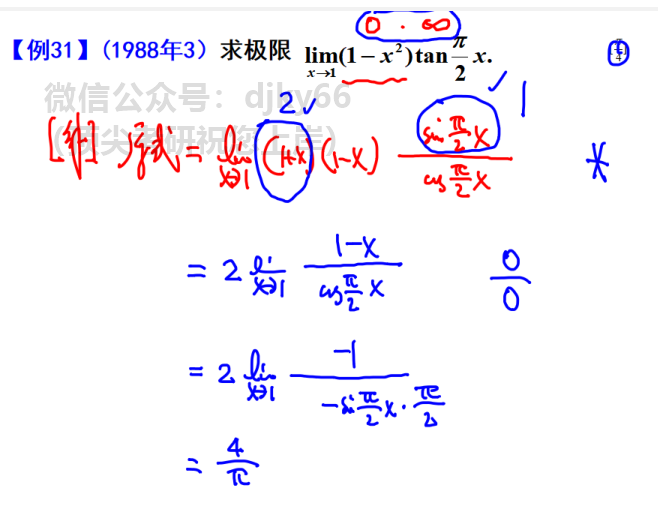 0 · ∞
【例31】(1988年3) 求极限 lim_{x→1}(1-x²)tan π/2 x.
微信公众号: djky66
2✓ ✓ 1
[解] 原式 = lim_{x→1} (1+x)(1-x) sin π/2 x / cos π/2 x *
= 2 lim_{x→1} 1-x / cos π/2 x 0/0
= 2 lim_{x→1} -1 / -sin π/2 x · π/2
= 4/π